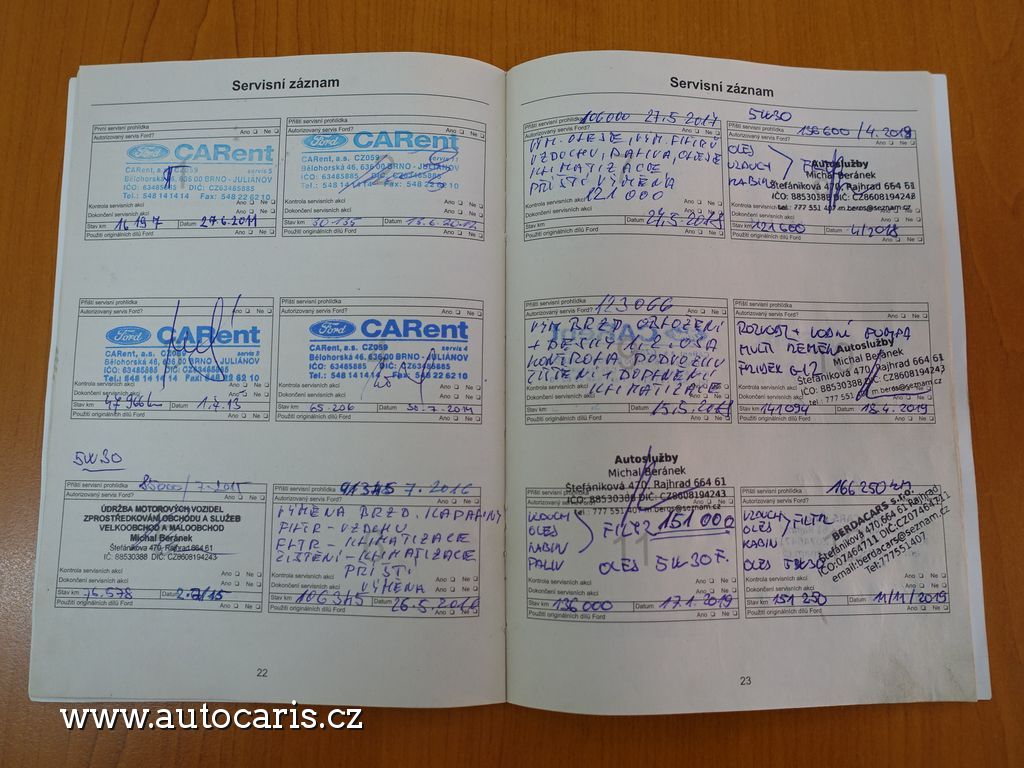 Servisní záznam
První servisní prohlídka
Autorizovaný servis Ford? Ano Ne
Ford CARent
CARent, a.s. CZ059 servis 5
Bělohorská 46, 636 00 BRNO - JULIÁNOV
IČO: 63485885 DIČ: CZ63485885
Tel.: 548 14 14 14 Fax: 548 22 62 10
Kontrola servisních akcí Ano Ne
Dokončení servisních akcí Ano Ne
Stav km 16197 Datum 27.6.2011
Použití originálních dílů Ford Ano Ne
Příští servisní prohlídka
Autorizovaný servis Ford? Ano Ne
Ford CARent
CARent, a.s. CZ059 servis 11
Bělohorská 46, 636 00 BRNO - JULIÁNOV
IČO: 63485885 DIČ: CZ63485885
Tel.: 548 14 14 14 Fax: 548 22 62 10
Kontrola servisních akcí Ano Ne
Dokončení servisních akcí Ano Ne
Stav km 30 135 Datum 15.6.2012
Použití originálních dílů Ford Ano Ne
Příští servisní prohlídka
Autorizovaný servis Ford? Ano Ne
Ford CARent
CARent, a.s. CZ059
Bělohorská 46, 636 00 BRNO - JULIÁNOV
IČO: 63485885 DIČ: CZ63485885
Tel.: 548 14 14 14 Fax: 548 22 62 10
Kontrola servisních akcí Ano Ne
Dokončení servisních akcí Ano Ne
Stav km 47 966 Datum 1.7.13
Použití originálních dílů Ford Ano Ne
Příští servisní prohlídka
Autorizovaný servis Ford? Ano Ne
Ford CARent
CARent, a.s. CZ059 servis 4
Bělohorská 46, 636 00 BRNO - JULIÁNOV
IČO: 63485885 DIČ: CZ63485885
Tel.: 548 14 14 14 Fax: 548 22 62 10
Kontrola servisních akcí Ano Ne
Dokončení servisních akcí Ano Ne
Stav km 65 206 Datum 30.7.2014
Použití originálních dílů Ford Ano Ne
5W30
85000/7.2015
Autorizovaný servis Ford? Ano Ne
ÚDRŽBA MOTOROVÝCH VOZIDEL
ZPROSTŘEDKOVÁNÍ OBCHODU A SLUŽEB
VELKOOBCHOD A MALOOBCHOD
Michal Beránek
Štefánikova 470, Rajhrad 664 61
IČ: 88530388 DIČ: CZ8608194243
Kontrola servisních akcí Ano Ne
Dokončení servisních akcí Ano Ne
Stav km 75.578 Datum 2.7/15
Použití originálních dílů Ford Ano Ne
7.2016
VÝMĚNA BRZD. KAPALINY
FILTR - VZDUCHU
FILTR - KLIMATIZACE
ČIŠTĚNÍ - KLIMATIZACE
PŘÍŠTÍ
VÝMĚNA
Dokončení servisních akcí
Stav km 106 345 Datum 26.5.2016
Použití originálních dílů Ford Ano Ne
22
Servisní záznam
106000 27.5.2017
VÝM. OLEJE, VÝM. FILTRŮ
VZDUCHU, PALIVA, OLEJE
KLIMATIZACE
PŘÍŠTÍ VÝMĚNA
121 000
Použití originálních dílů Ford Ano Ne
5W30
136600 /4.2019
Autorizovaný servis Ford? Ano Ne
OLEJ
VZDUCH
KABIN
Autoslužby
Michal Beránek
Štefánikova 470, Rajhrad 664 61
IČO: 88530388 DIČ: CZ8608194243
tel.: 777 551 407 m.beros@seznam.cz
Stav km 121600 Datum 4/2018
Použití originálních dílů Ford Ano Ne
Příští servisní prohlídka 123066
VÝM. BRZD. OBLOŽENÍ
+ DESKY 1. 2. OSA
KONTROLA PODVOZKU
ČIŠTĚNÍ + DOPLNĚNÍ
KLIMATIZACE
Stav km Datum
Použití originálních dílů Ford Ano Ne
Příští servisní prohlídka
Autorizovaný servis Ford? Ano Ne
ROZVOD + VODNÍ PUMPA
MULTI ŘEMEN
Autoslužby
Michal Beránek
Štefánikova 470, Rajhrad 664 61
IČO: 88530388 DIČ: CZ8608194243
tel.: 777 551 m.beros@seznam.cz
Stav km 141094 Datum 18.4.2019
Použití originálních dílů Ford Ano Ne
Autoslužby
Michal Beránek
Štefánikova 470, Rajhrad 664 61
IČO: 88530388 DIČ: CZ8608194243
tel.: 777 551 407 m.beros@seznam.cz
VZDUCH
OLEJ
KABIN
PALIV
FILTR 151 000
OLEJ 5W30 F.
Kontrola servisních akcí Ano Ne
Dokončení servisních akcí Ano Ne
Stav km 136000 Datum 17.1.2019
Použití originálních dílů Ford Ano Ne
Příští servisní prohlídka 166 250 km
Autorizovaný servis Ford?
VZDUCH
OLEJ
KABIN
FILTR
OLEJ 5W30
BERDACARS s.r.o.
Štefánikova 470, 664 61 Rajhrad
IČO:07464711 DIČ:CZ07464711
email:berdacars@seznam.cz
Tel:777551407
Kontrola servisních akcí Ano Ne
Dokončení servisních akcí Ano Ne
Stav km 151 250 Datum 11/11/2019
Použití originálních dílů Ford Ano Ne
23
www.autocaris.cz